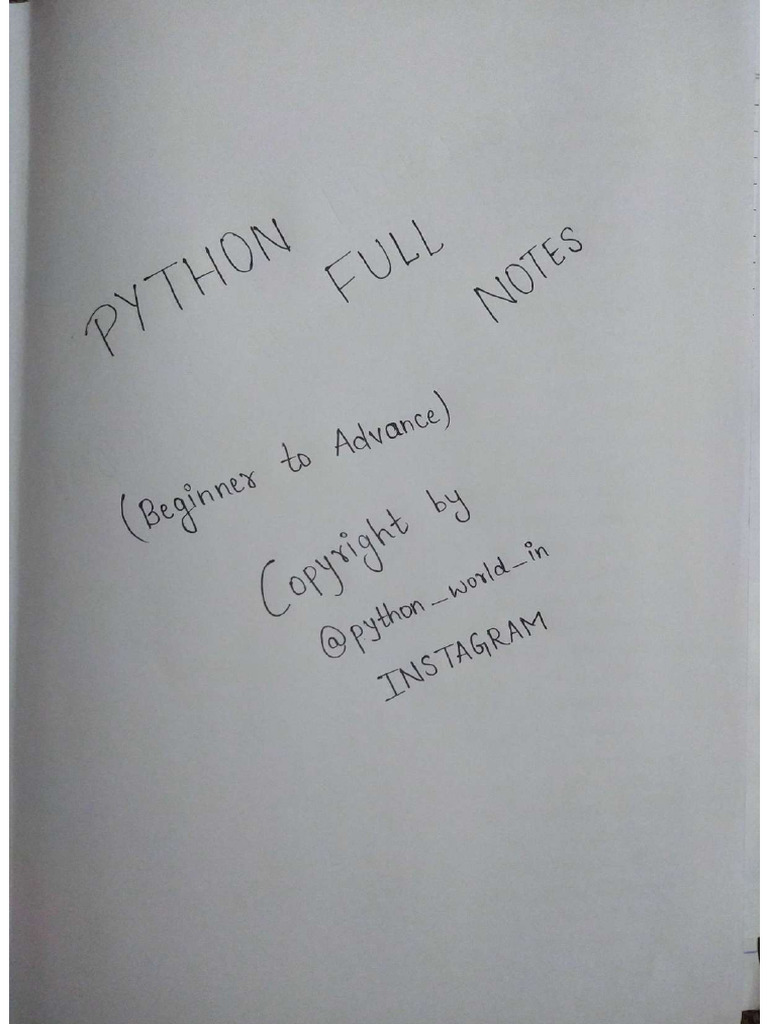 PYTHON FULL NOTES
(Beginner to Advance)
Copyright by
@python_world_in
INSTAGRAM